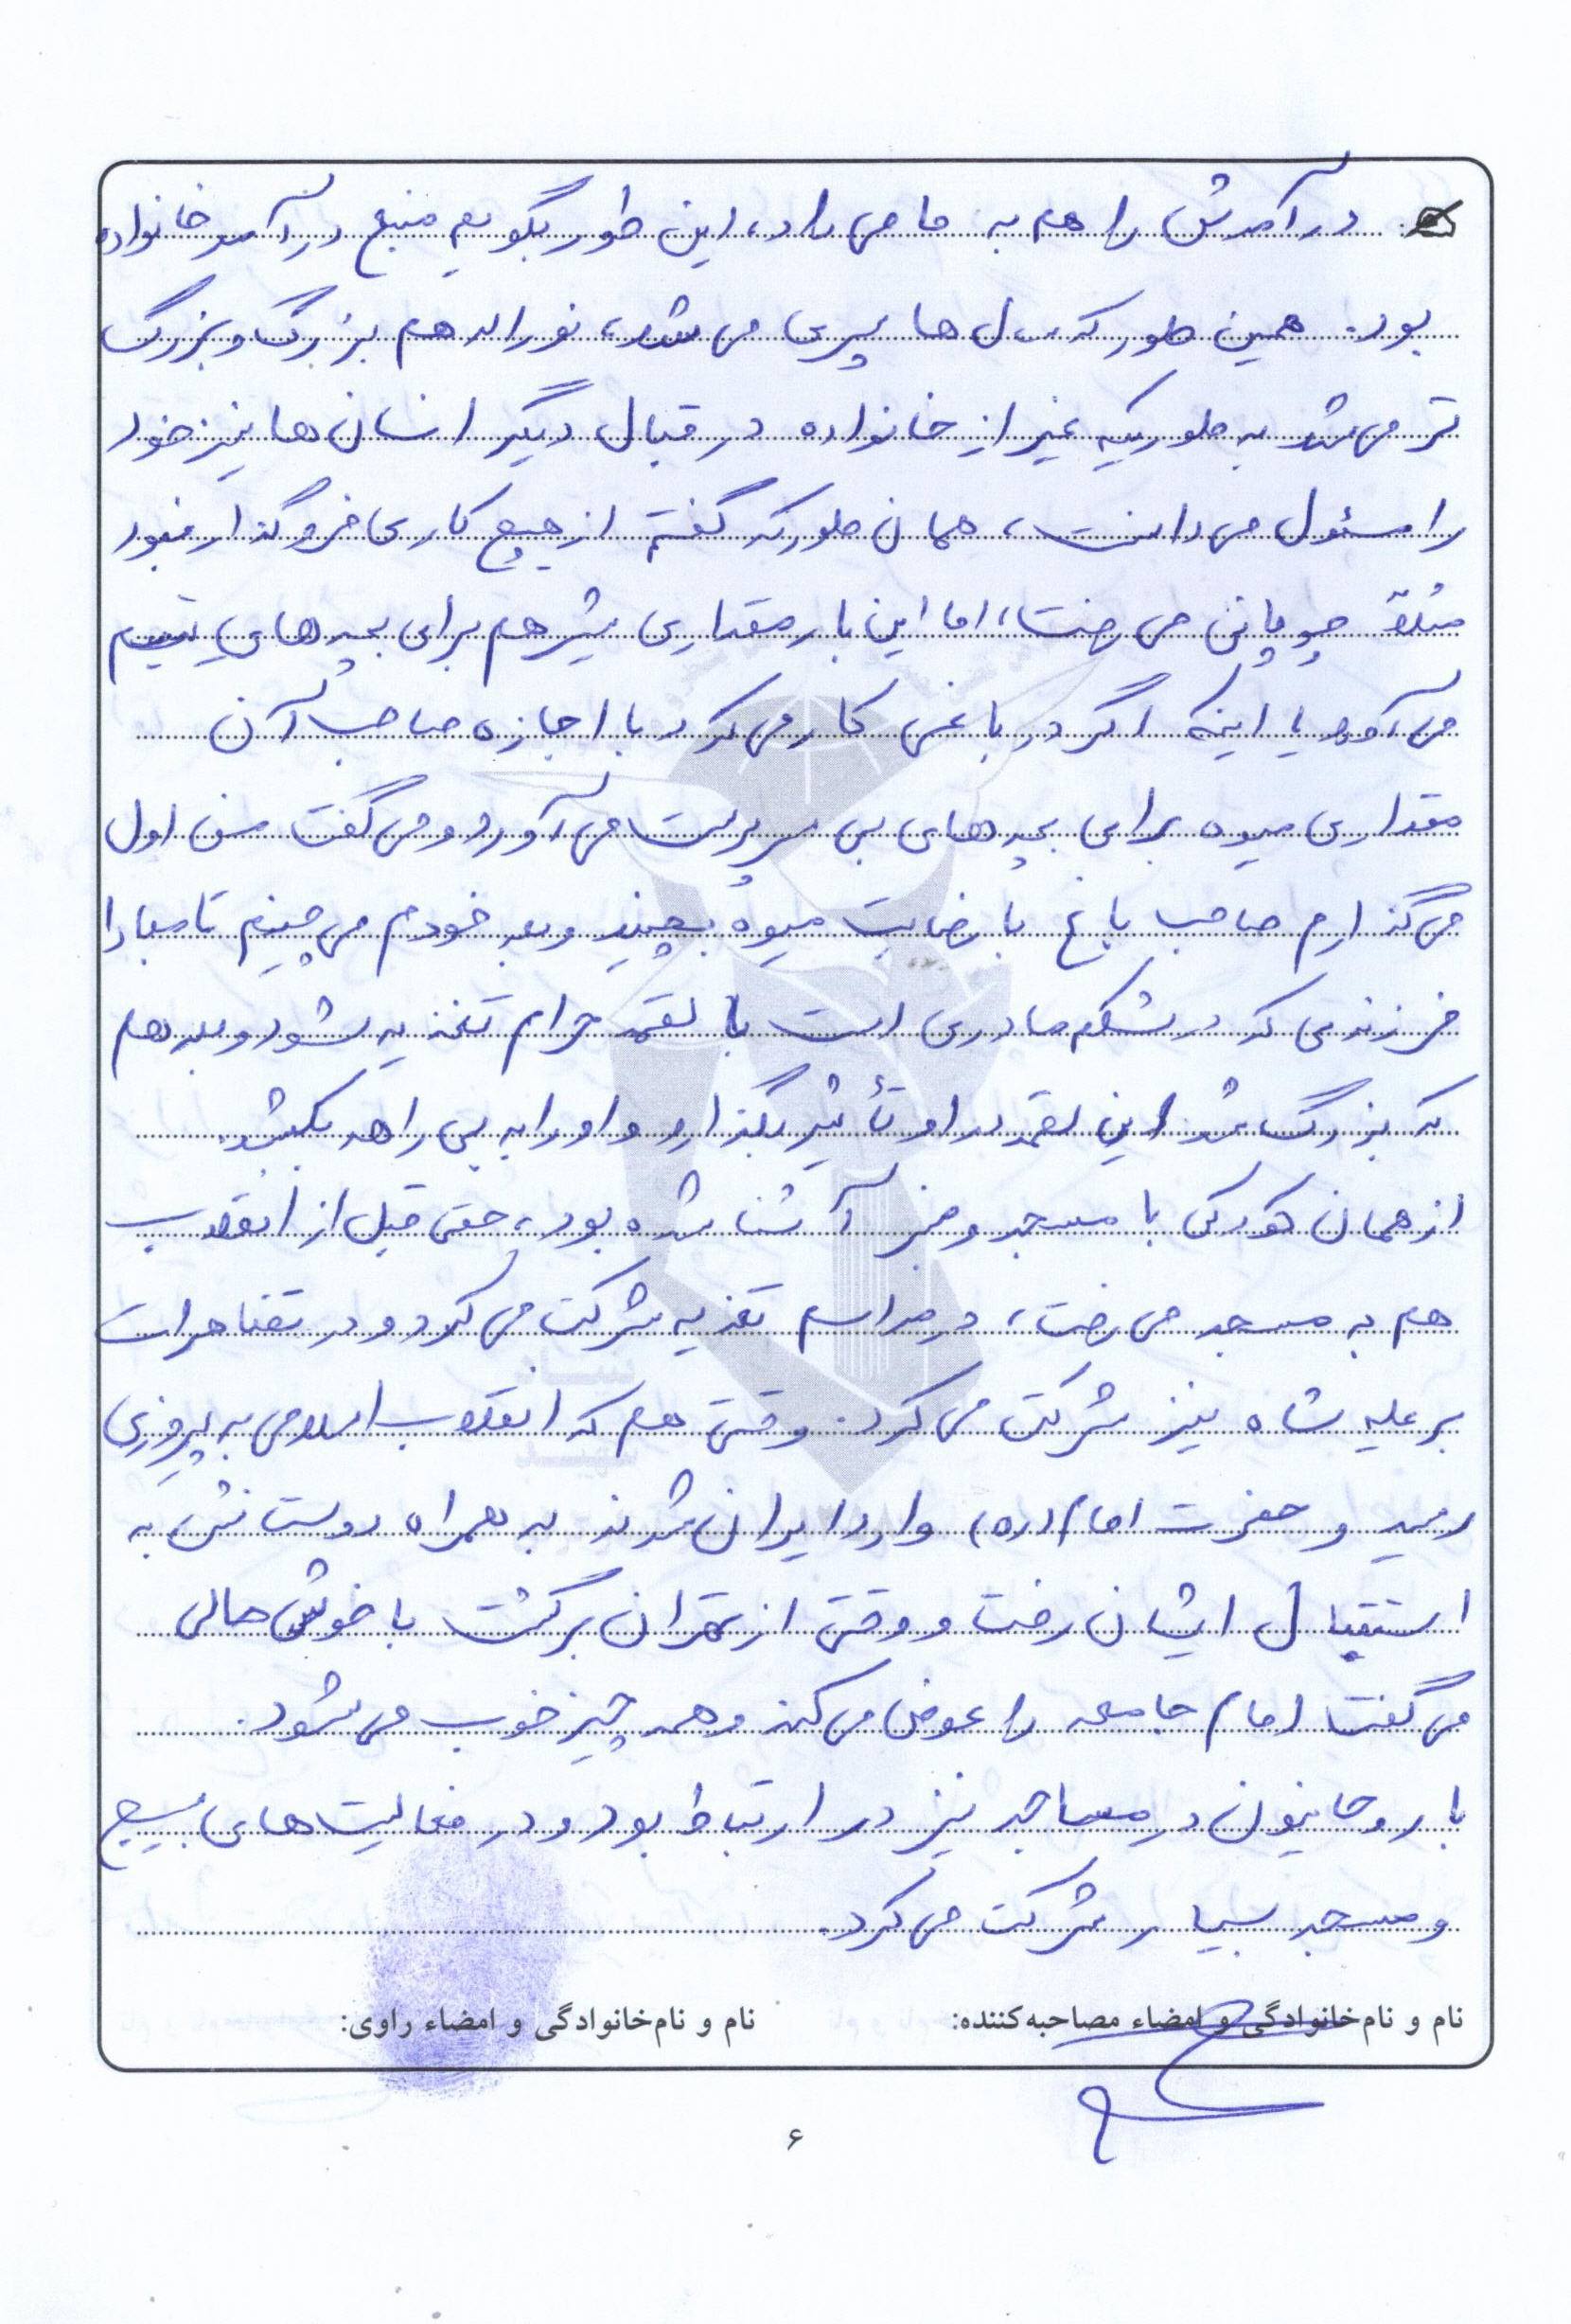 درآمدش را هم به ما می داد، این طور بگویم منبع درآمد خانواده
بود. همین طور که سال ها سپری می شد، نوراله هم بزرگ و بزرگ
تر می شد به طوریکه غیر از خانواده در قبال دیگر انسان ها نیز خود
را مسئول می دانست، همان طور که گفتم از هیچ کاری فروگذار نبود
مثلاً چوپانی می رفت، اما این بار مقداری شیر هم برای بچه های یتیم
می آورد یا اینکه اگر در باغی کار می کرد با اجازه صاحب آن
مقداری میوه برای بچه های بی سرپرست می آورد و می گفت من اول
می گذارم صاحب باغ با رضایت میوه بچیند و بعد خودم می چینم تا مبادا
فرزندی که در شکم مادری است با لقمه حرام تغذیه شود و بعد هم
که بزرگ شد این لقمه در او تأثیر بگذارد و او را به بی راهه بکشد.
از همان کودکی با مسجد و منبر آشنا شده بود، حتی قبل از انقلاب
هم به مسجد می رفت، در مراسم تعزیه شرکت می کرد و در تظاهرات
بر علیه شاه نیز شرکت می کرد. وقتی هم که انقلاب اسلامی به پیروزی
رسید و حضرت امام (ره) وارد ایران شدند به همراه دوستانش به
استقبال ایشان رفت و وقتی از تهران برگشت با خوش حالی
می گفت امام جامعه را عوض می کند و همه چیز خوب می شود.
با روحانیون در مساجد نیز در ارتباط بود و در فعالیت های بسیج
و مسجد بسیار شرکت می کرد.
نام و نام‌خانوادگی و امضاء مصاحبه‌کننده: نام و نام‌خانوادگی و امضاء راوی:
۶